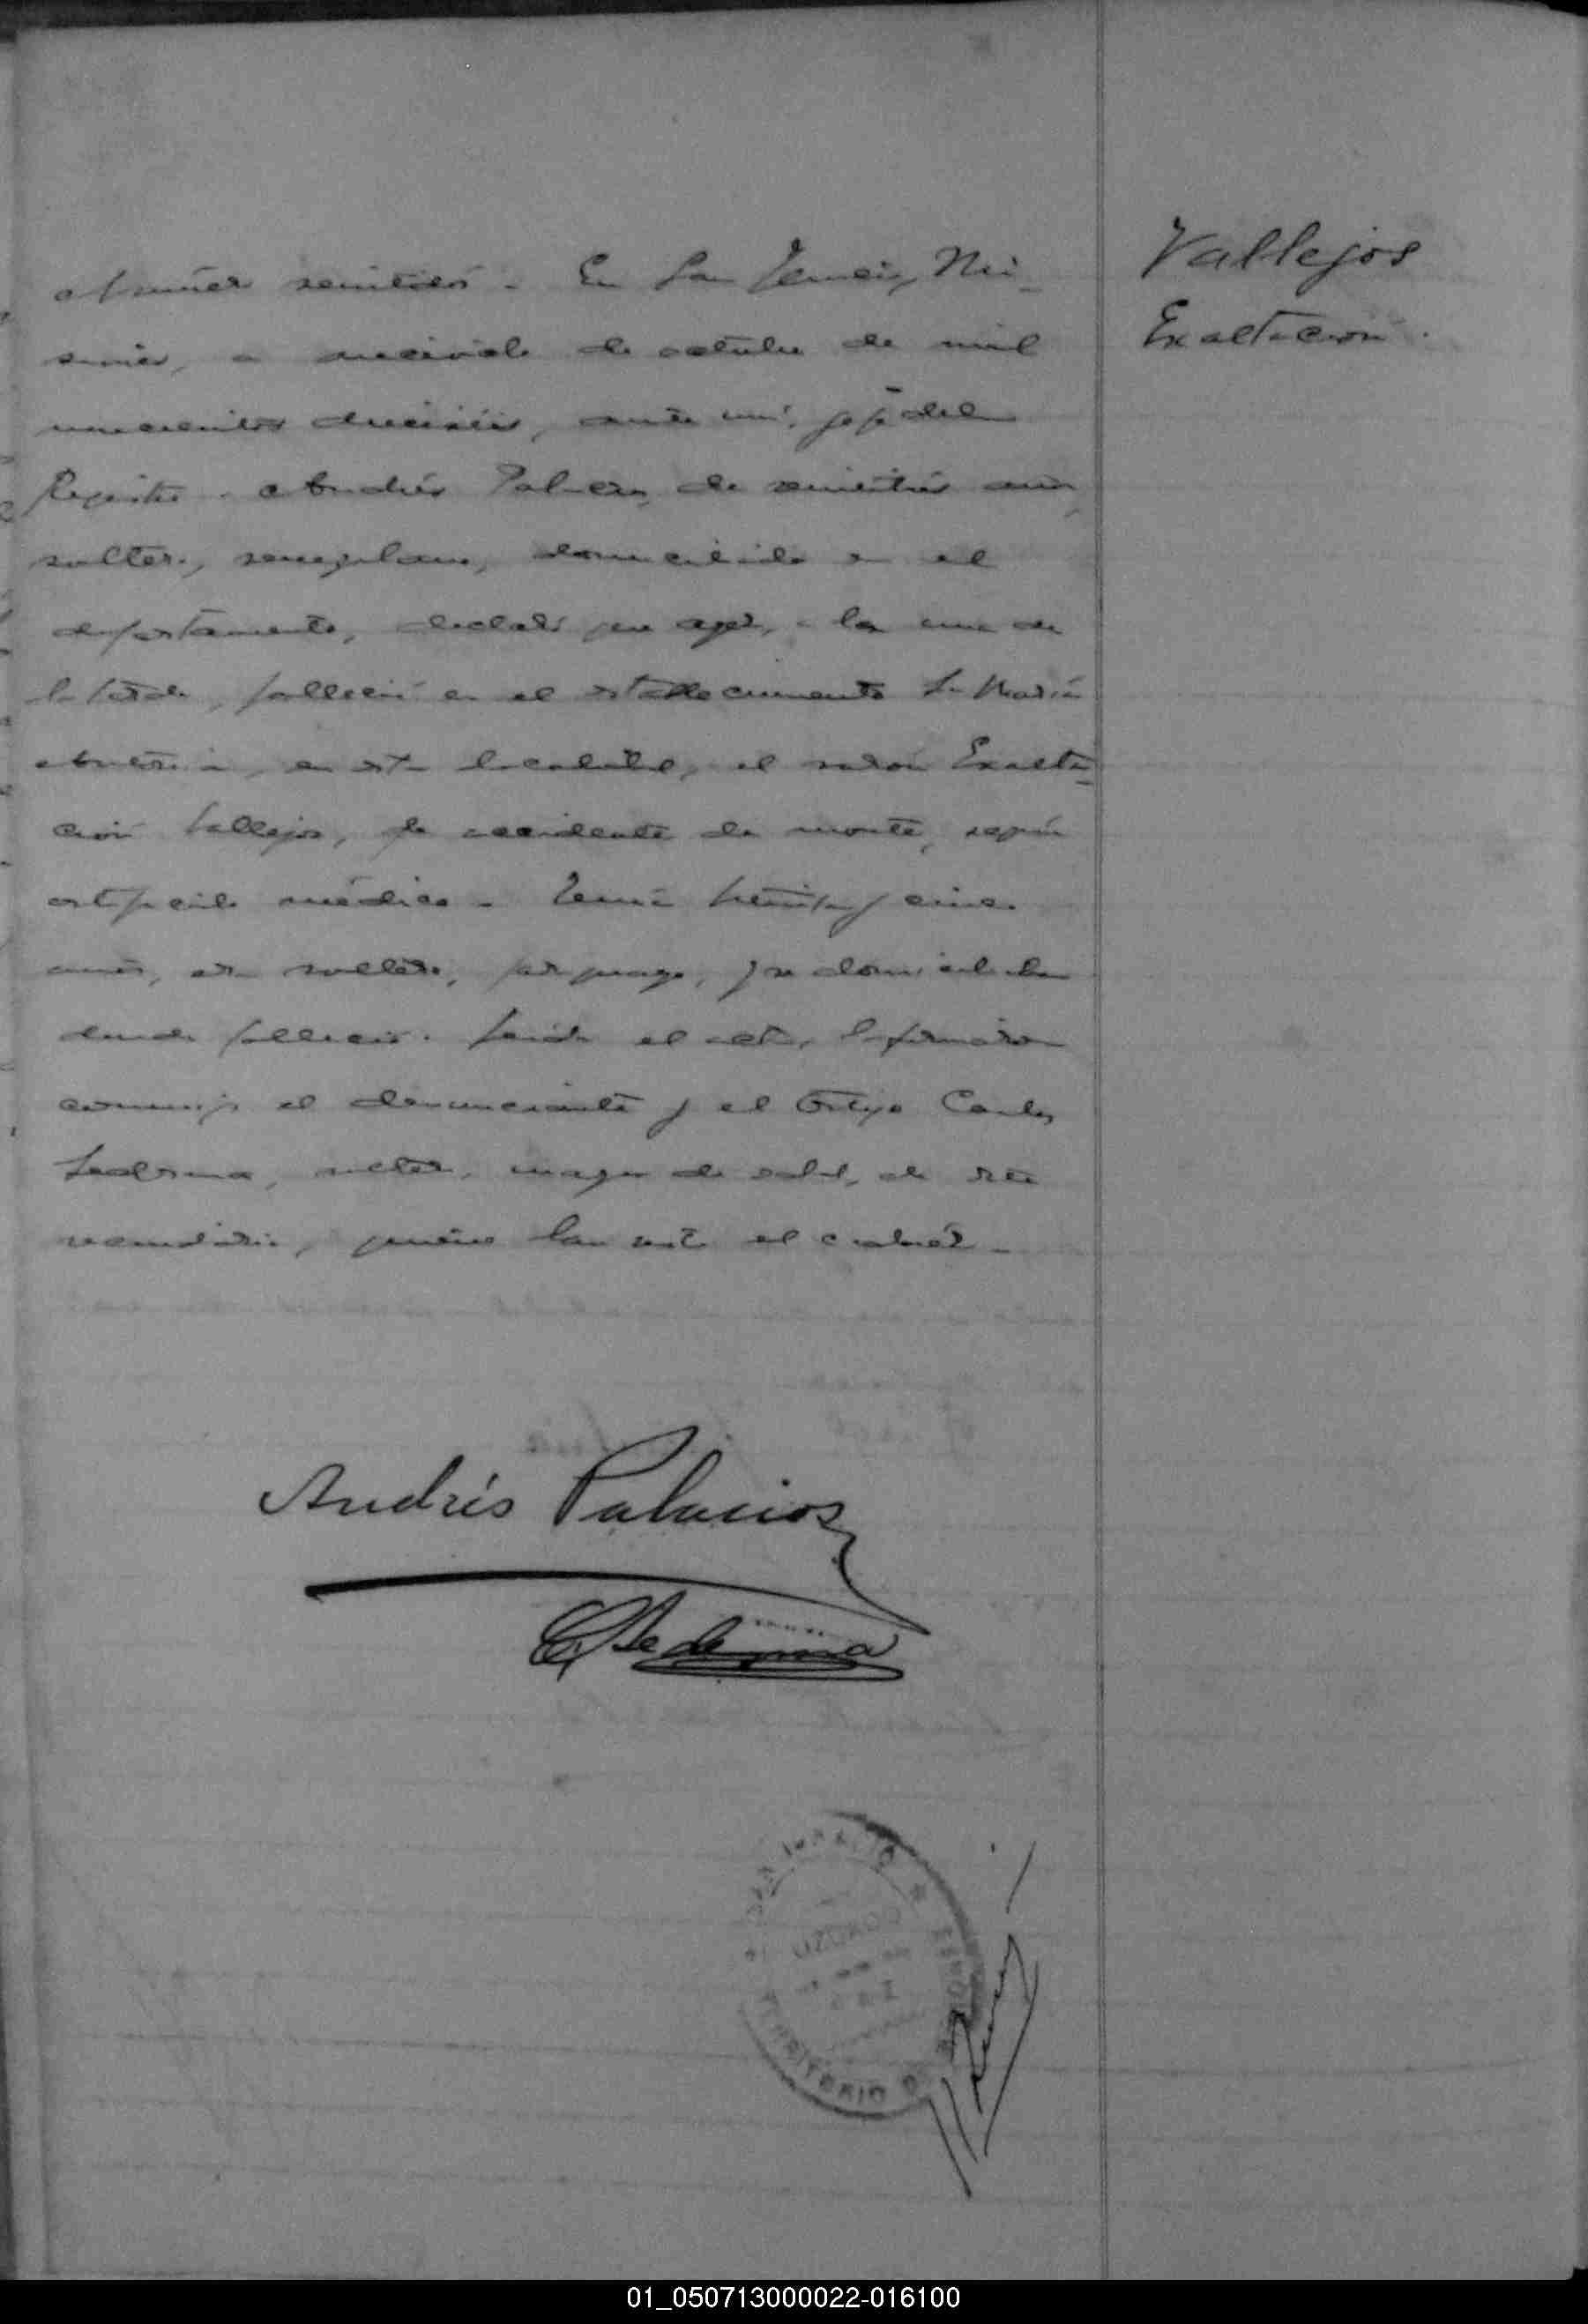 Vallejos
Exaltación.
Número veintidós. En San Ignacio, Mi-
siones, a de octubre de mil
novecientos dieciséis, ante mí, jefe del
Registro. Andrés Palacios, de veintitrés años,
soltero, domiciliado en el
departamento, declaró que ayer, a la una de
la tarde, falleció en el establecimiento La María
Antonia, en esta localidad, el varón Exalta-
ción Vallejos, de accidente de monte, según
certificado médico. Tenía treinta y cinco
años, era soltero, paraguayo, y se domiciliaba
donde falleció. Leída el acta, la firmaron
conmigo el denunciante y el testigo Carlos
Ledesma, soltero, mayor de edad, de este
vecindario, quienes han visto el cadáver.
Andrés Palacios
C. Ledesma
SAN IGNACIO
TERRITORIO DE MISIONES
01_050713000022-016100